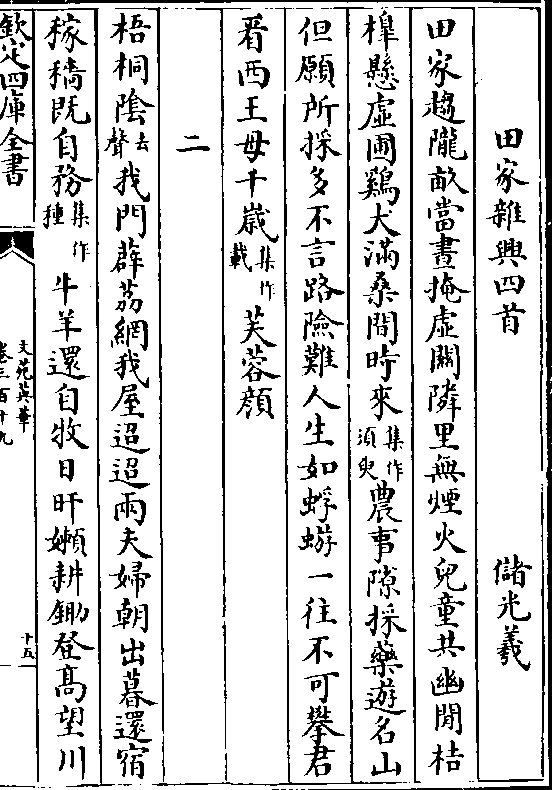 田家雜興四首 儲光羲
田家趨隴畝當晝掩虛關隣里無煙火兒童共幽閒桔
槔懸虛圃鷄犬滿桑間時來集作須臾農事隙採藥遊名山
但願所採多不言路險難人生如蜉蝣一往不可攀君
看西王母千歲集作載芙蓉顔
二
梧桐隂去聲我門薜荔網我屋迢迢兩夫婦朝出暮還宿
稼穡既自務集作種牛羊還自牧日旰嬾耕鋤登高望川
欽定四庫全書
文苑英華
卷三百十九
十五